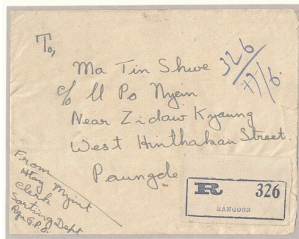 To,
326
17/6.
Ma Tin Shwe
c/o U Po Nyein
Near Zidaw Kyaung
West Hinthakan Street.
Paungde
From
Htay Myint
clerk
Sorting Dept
Rgn G.P.O.
R 326
RANGOON